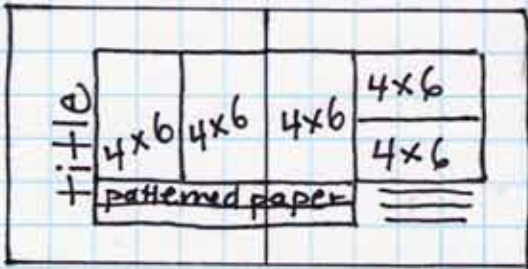 title
4x6
4x6
4x6
4x6
4x6
patterned paper